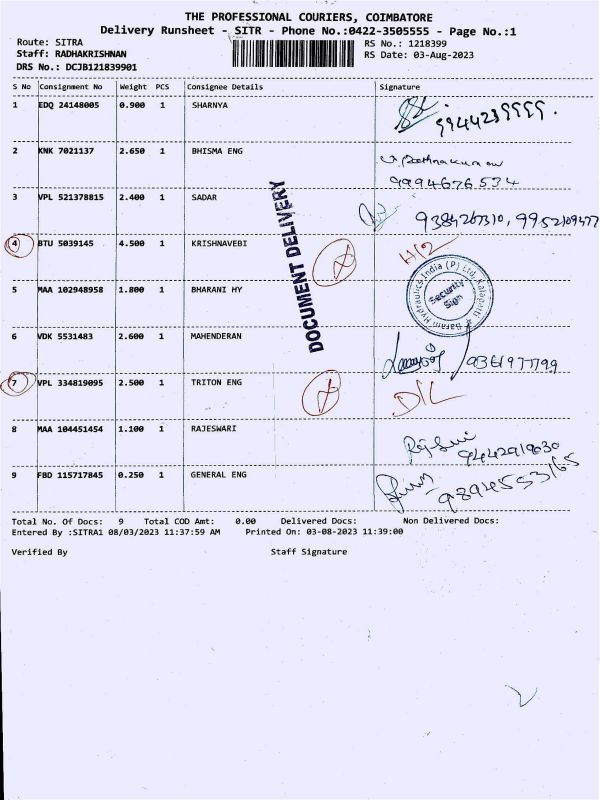 THE PROFESSIONAL COURIERS, COIMBATORE
Delivery Runsheet - SITR - Phone No.:0422-3505555 - Page No.:1
Route: SITRA
RS No.: 1218399
Staff: RADHAKRISHNAN
RS Date: 03-Aug-2023
DRS No.: DCJB121839901
S No Consignment No Weight PCS Consignee Details Signature
1 EDQ 24148005 0.900 1 SHARNYA
9944239999.
2 KNK 7021137 2.650 1 BHISMA ENG
9994676534
3 VPL 521378815 2.400 1 SADAR
9384267310, 9952109477
DOCUMENT DELIVERY
4 BTU 5039145 4.500 1 KRISHNAVEBI
5 MAA 102948958 1.800 1 BHARANI HY
Baram Hydraulics India (P) Ltd, Kalapatti
Security Sign
6 VDK 5531483 2.600 1 MAHENDERAN
9361977799
7 VPL 334819095 2.500 1 TRITON ENG
D/L
8 MAA 104451454 1.100 1 RAJESWARI
9442919030
9 FBD 115717845 0.250 1 GENERAL ENG
9894553165
Total No. Of Docs: 9 Total COD Amt: 0.00 Delivered Docs: Non Delivered Docs:
Entered By :SITRA1 08/03/2023 11:37:59 AM Printed On: 03-08-2023 11:39:00
Verified By Staff Signature